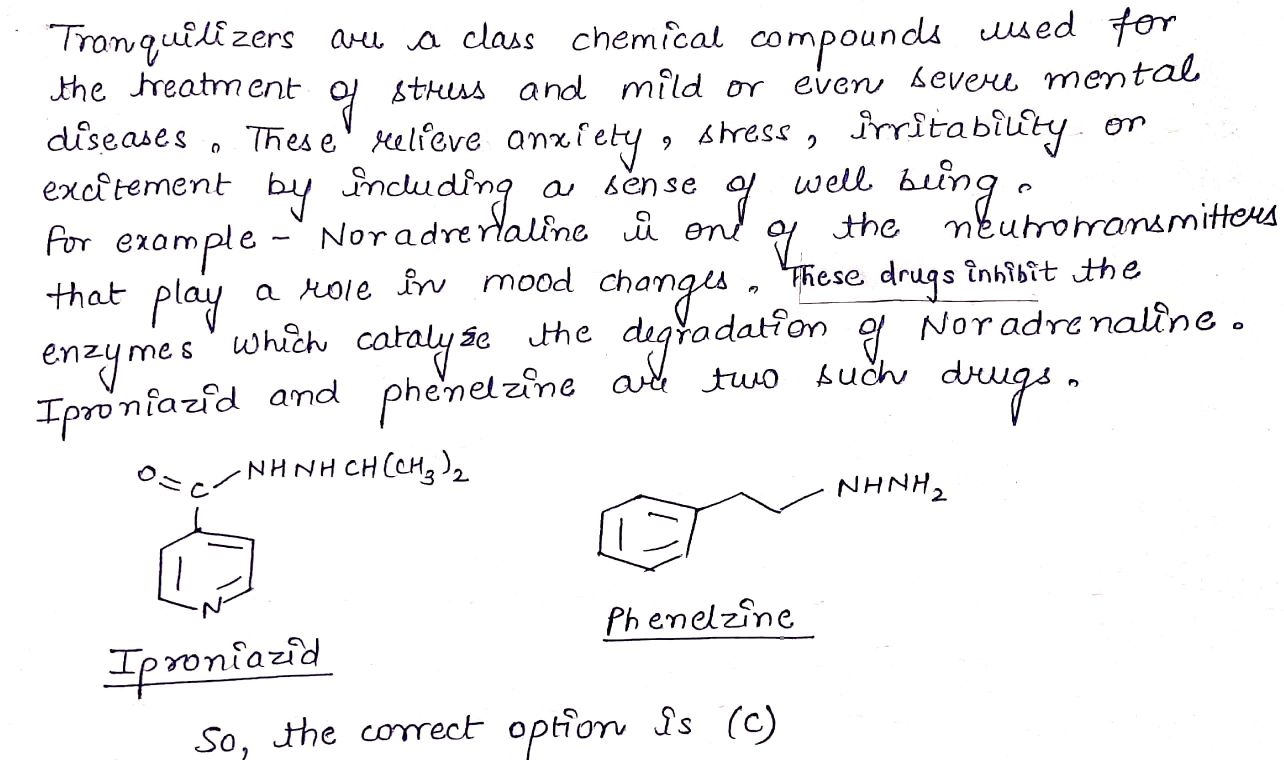 Tranquilizers are a class chemical compounds used for
the treatment of stress and mild or even severe mental
diseases. These relieve anxiety, stress, irritability or
excitement by including a sense of well being.
For example - Noradrenaline is one of the neutrotransmitters
that play a role in mood changes. These drugs inhibit the
enzymes which catalyse the degradation of Noradrenaline.
Iproniazid and phenelzine are two such drugs.
O=C-NHNHCH(CH3)2
NHNH2
N
Phenelzine
Iproniazid
So, the correct option is (C)